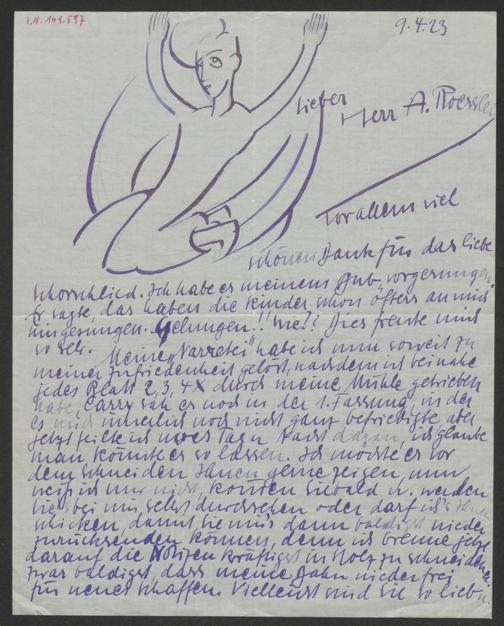 I.N. 149.597
9.4.23
Lieber
Herr A. Roessler
Vor allem viel
schönen Dank für das liebe
Ich habe es meinem vorgesungen
Er sagte, das haben die Kinder schon öfters an mich
hingesungen. Gelungen!! Wie?? Dies freute mich
so sehr. Meine „Narretei" habe ich nun soweit zu
meiner Zufriedenheit gelöst, nachdem ich beinahe
jedes Blatt 2, 3, 4 x durch meine Mühle getrieben
habe, Carry sah es noch in der 1. Fassung, in der
es mich noch nicht ganz befriedigte, aber
jetzt feilte ich noch Tag u. Nacht daran, ich glaube
man könnte es so lassen. Ich möchte es vor
dem Schneiden Ihnen gerne zeigen, nun
weiß ich nur nicht, können Sie bald u. werden
Sie's bei mir selbst durchsehen oder darf ich's Ihnen
schicken, damit Sie mir's dann baldigst wieder
zurücksenden können, denn ich brenne jetzt
darauf die Notizen kräftigst in Holz zu schneiden
zwar baldigst, dass meine Bahn wieder frei
für neues Schaffen. Vielleicht sind Sie so lieb u.